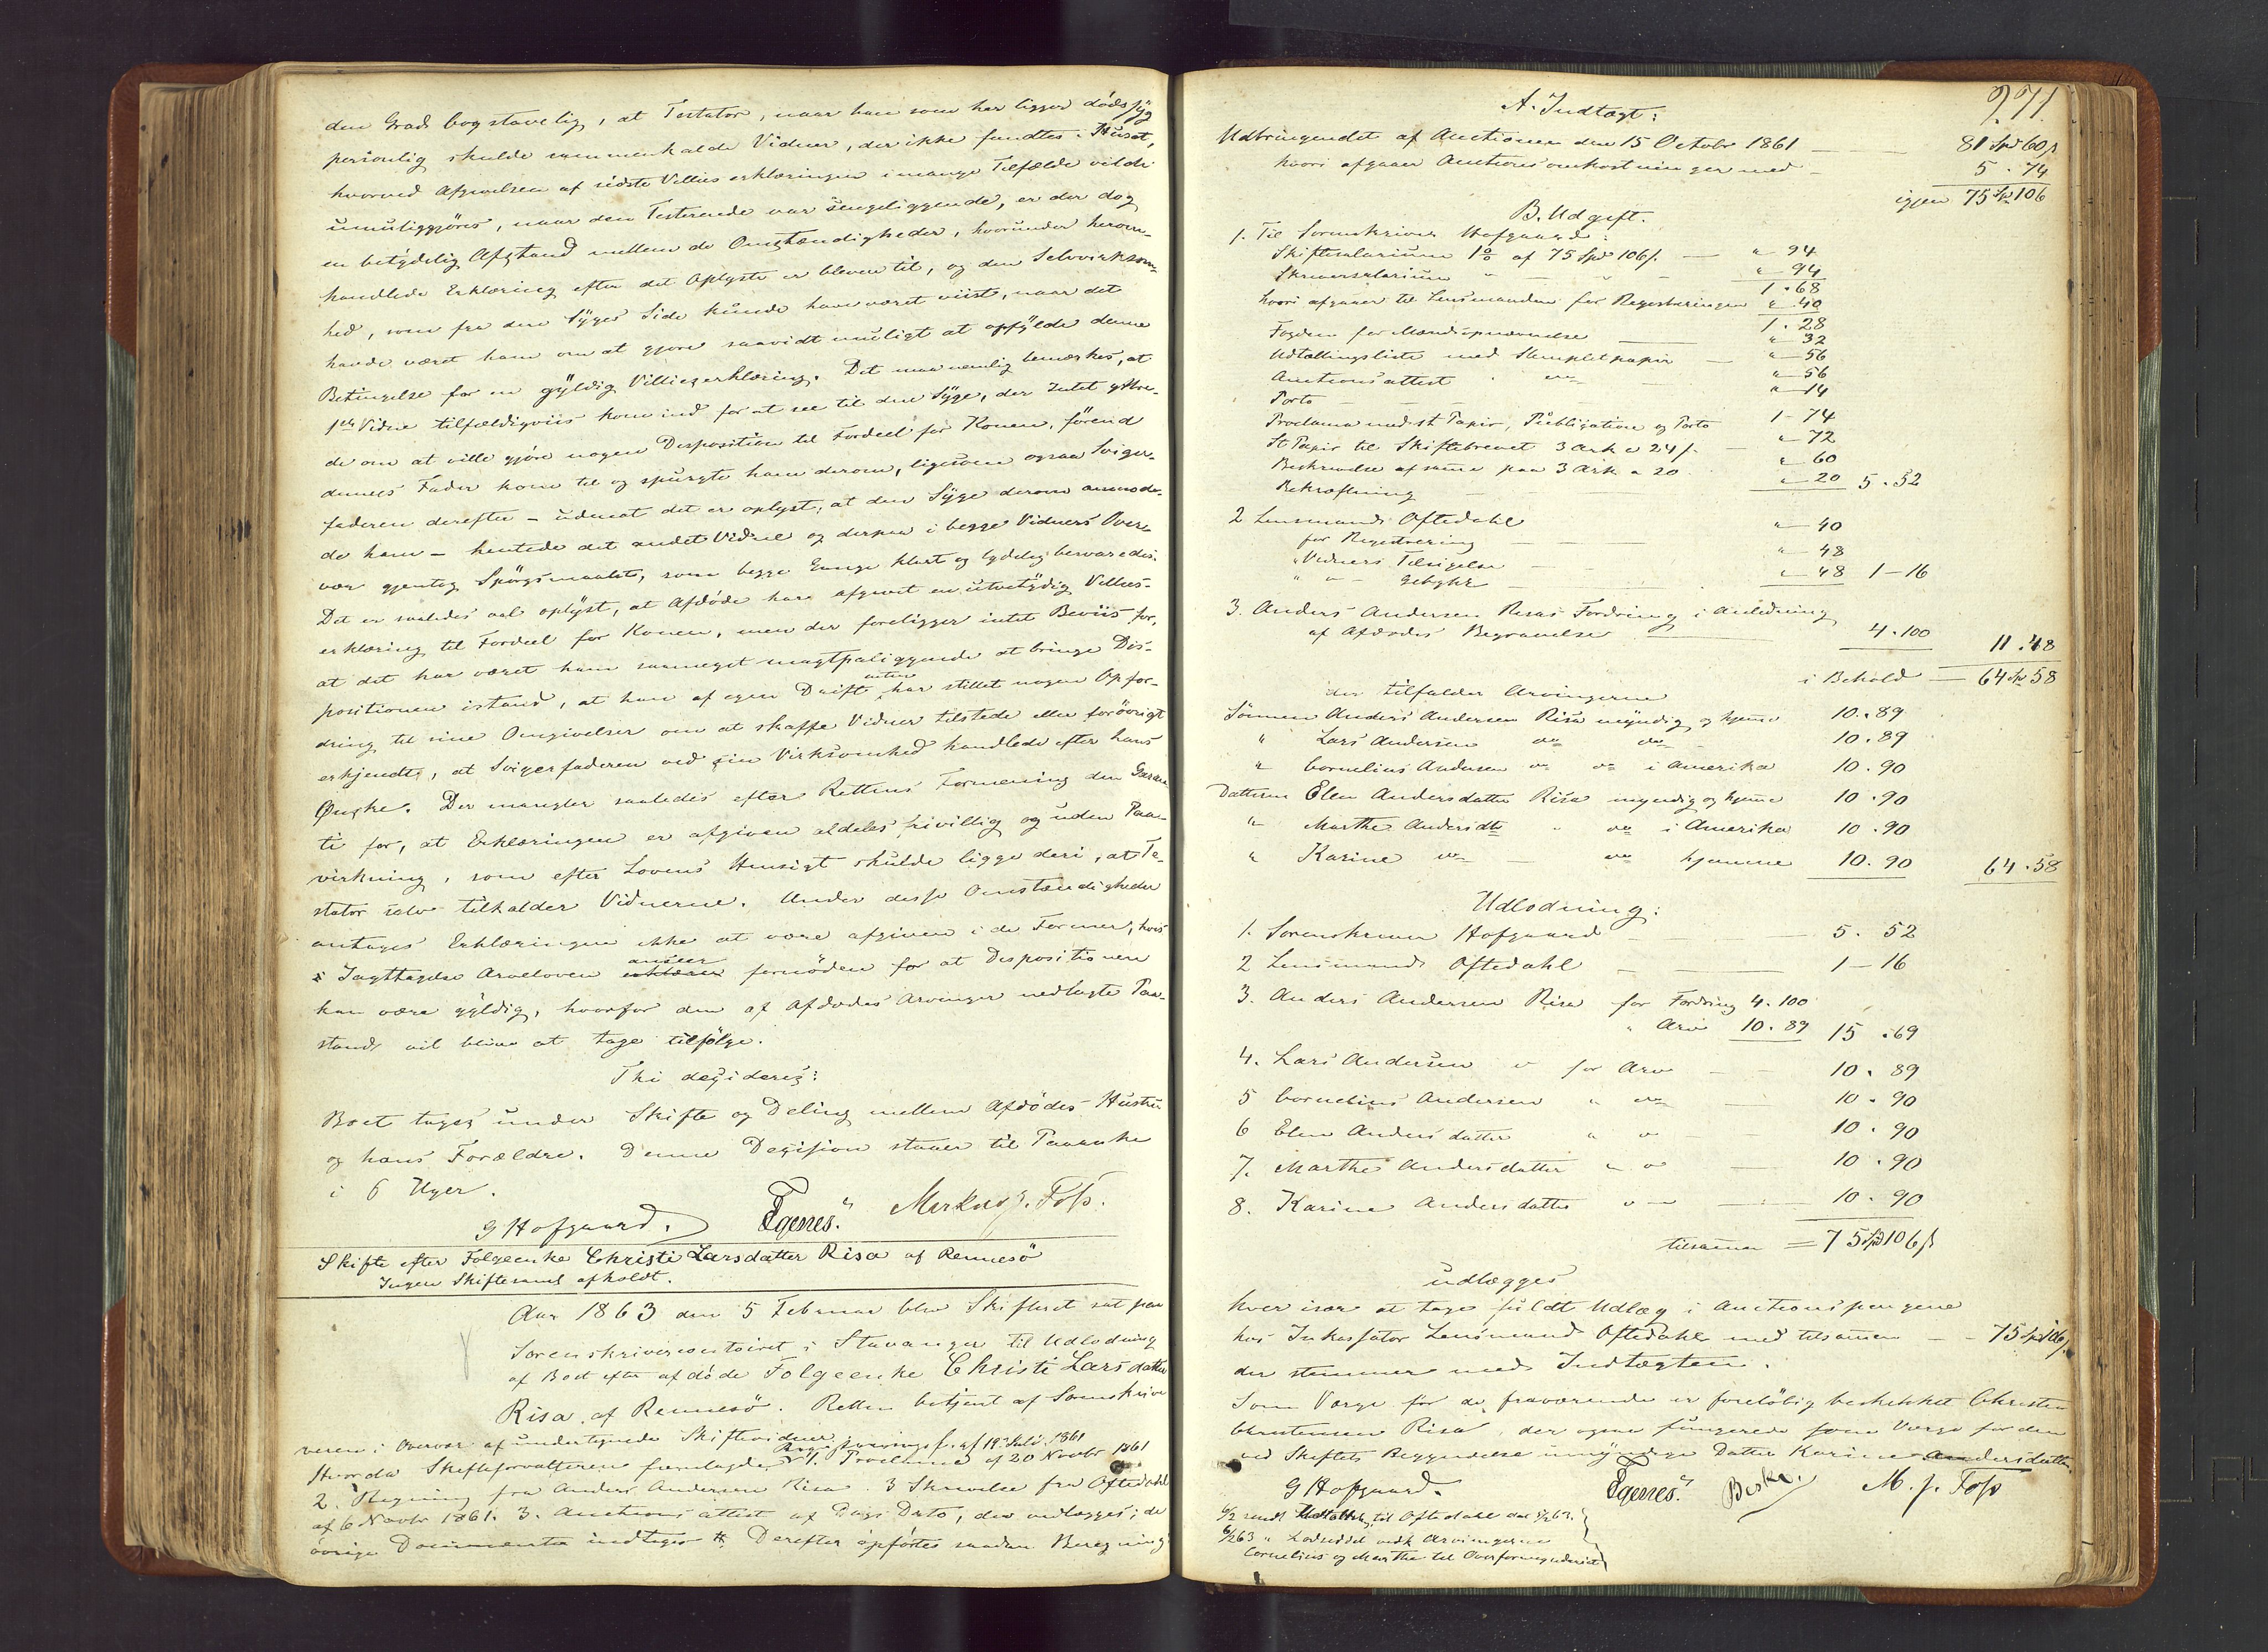 den Grad bogstavelig, at Testator, naar han som her ligger dødssyg
personlig skulde sammenkalde Vidner, der ikke fandtes i Huset,
hvorved Afgivelsen af sidste Villies erklæringen i mange Tilfælde vilde
umuliggjøres, naar den Testerende var sengeliggende, er der dog
en betydelig Afstand mellem de Omstændigheder, hvorunder herom-
handlede Erklæring efter det Oplyste er bleven til, og den Selvvirksom-
hed, som fra den Syges Side kunde have været viist, naar det
havde været ham om at gjøre saavidt muligt at opfylde denne
Betingelse for en gyldig Villieserklæring. Det maa nemlig bemærkes, at
1ste Vidne tilfældigviis kom ind for at see til den Syge, der Intet yttre-
de om at ville gjøre nogen Disposition til Fordeel for Konen, førend
dennes Fader kom til og spurgte ham derom, ligesom ogsaa Sviger-
faderen derefter – uden at det er oplyst, at den Syge derom anmode-
de ham – hentede det andet Vidne og derpaa i begge Vidners Over-
vær gjentog Spørgsmaalet, som begge Gange klart og tydelig besvaredes.
Det er saaledes vel oplyst, at Afdøde har afgivet en utvetydig Villies-
erklæring til Fordeel for Konen, men der foreligger intet Beviis for,
at det har været ham saameget magtpaaliggende at bringe Dis-
positionen istand, at han af egen Drift har stillet nogen Opfor-
dring til sine Omgivelser om at skaffe Vidner tilstede eller forøvrigt
erkjendt, at Svigerfaderen ved sin Virksomhed handlede efter hans
Ønske. Der mangler saaledes efter Rettens Formening den Garan-
ti for, at Erklæringen er afgiven aldeles frivillig og uden Paa-
virkning, som efter Lovens Hensigt skulde ligge deri, at Te-
stator selv tilkalder Vidnerne. Under disse Omstændigheder
antages Erklæringen ikke at være afgiven i de Former, hvis
Iagttagelse Arveloven anseer fornøden for at Dispositionen
kan være gyldig, hvorfor den af Afdødes Arvinger nedlagte Paa-
stand vil blive at tage tilfølge.
Thi decideres:
Boet tages under Skifte og Deling mellem Afdødes Hustru
og hans Forældre. Denne Decision staaer til Paaanke
i 6 Uger.
G Hofgaard. Egenes. Markus J. Foss.
Skifte efter Folgeenke Christi Larsdatter Risa af Rennesö
Ingen Skiftesaml afholdt.
Aar 1863 den 5 Februar blev Skifteret sat paa
Sorenskrivercontoiret i Stavanger til Udlodning
af Boet efter afdøde Folgeenke Christi Larsdatter
Risa af Rennesö. Retten betjent af Sorenskri-
veren i Overvær af undertegnede Skiftevidner.
Hvorda Skifteforvalteren fremlagde Registreringsf. af 19 Juli 1861 1. Proclama af 20 Novbr 1861
2. Regning fra Anders Andersen Risa. 3 Skrivelse fra Oftedahl
af 6 Novbr 1861. 3. Auctions attest af Dags Dato, der vedlægges; de
øvrige Documenter indtages. Derefter opførtes saadan Beregning
971
A. Indtægt:
Udbringendet af Auctionen den 15 October 1861 — 81 Spd 60 s
hvori afgaaer Auctionsomkostninger med – 5 . 74
igjen 75 Sp 106
B. Udgift.
1. Til Sorenskriver Hofgaard:
Skiftesalarium 1% af 75 Spd 106 s. — " 94
Skriversalarium " – " – " 94
1 . 68
hvori afgaaer til Lensmanden for Registreringen " 40
1 . 28
Fogden for Mændsopnævnelse — " 32
Udtællingsliste med Stempletpapir — " 56
Auctionsattest do " 56
Porto — " 14
Proclama med st Papir, Publication og Porto 1 – 74
St Papir til Skiftebrevet 3 Ark a 24 s. " 72
Beskrivelse af samme paa 3 Ark a 20 " 60
Bekræftning " 20 5 . 52
2 Lensmand Oftedahl
for Registrering — " 40
" Vidners Tilsigelse — " 48
" " Gebyhr — " 48 1 – 16
3. Anders Andersen Risas Fordring i Anledning
af Afdødes Begravelse — 4 . 100 11 . 48
i Behold — 64 Sp 58
der tilfalder Arvingerne
Sønnen Anders Andersen Risa myndig og hjemme 10 . 89
" Lars Andersen do do 10 . 89
" Cornelius Andersen do do i Amerika 10 . 90
Datteren Elen Andersdatter Risa myndig og hjemme 10 . 90
" Marthe Andersdtr " do i Amerika 10 . 90
" Karine do — do hjemme 10 . 90 64 . 58
Udlodning:
1. Sorenskriver Hofgaard — 5 . 52
2 Lensmand Oftedahl — 1 – 16
3. Anders Andersen Risa for Fordring 4 . 100
" Arv 10 . 89 15 . 69
4. Lars Andersen " for Arv — 10 . 89
5 Cornelius Andersen " do — 10 . 90
6 Elen Andersdatter " " — 10 . 90
7. Marthe Andersdatter " " — 10 . 90
8. Karine Andersdatter " — 10 . 90
tilsammen = 75 Spd 106 s
udlægges
hver især at tage fuldt Udlæg i Auctionspengene
hos Inkassator Lensmand Oftedahl med tilsammen — 75 Spd 106 s.
der stemmer med Indtægten.
Som Værge for de fraværende er foreløbig beskikket Christen
Christensen Risa, der ogsaa fungerede som Værge for den
ved Skiftets Begyndelse umyndige Datter Karine Andersdatter.
G Hofgaard. Egenes. Beskr. M. J. Foss
6/2 sendt til Oftedahl
6/2 63 " Lodseddel vedk Arvingerne
Cornelius og Marthe til Overformynderiet